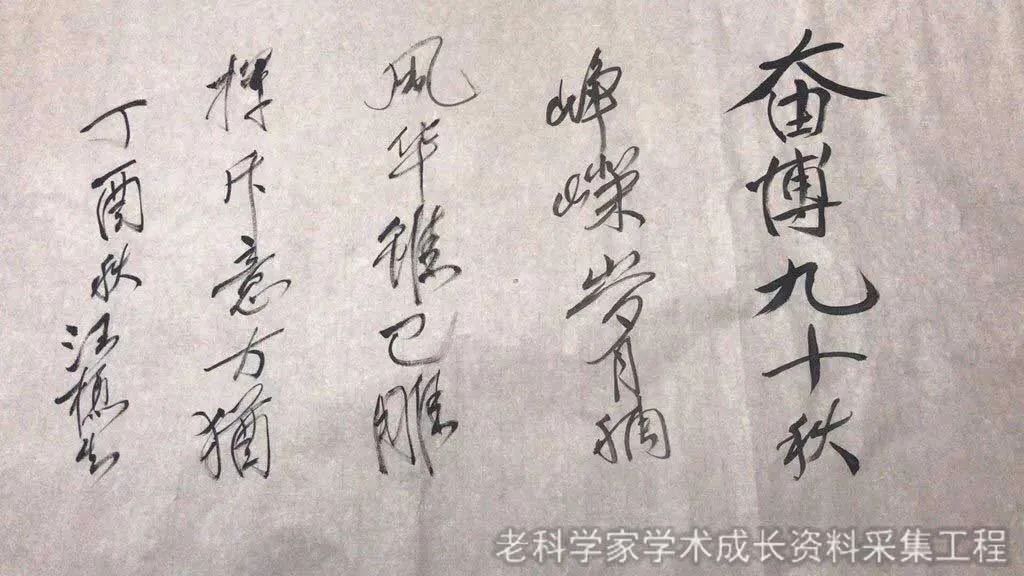 奋博九十秋
峥嵘岁月稠
风华虽已雕
挥斥意方猶
丁酉秋汪槱生
老科学家学术成长资料采集工程